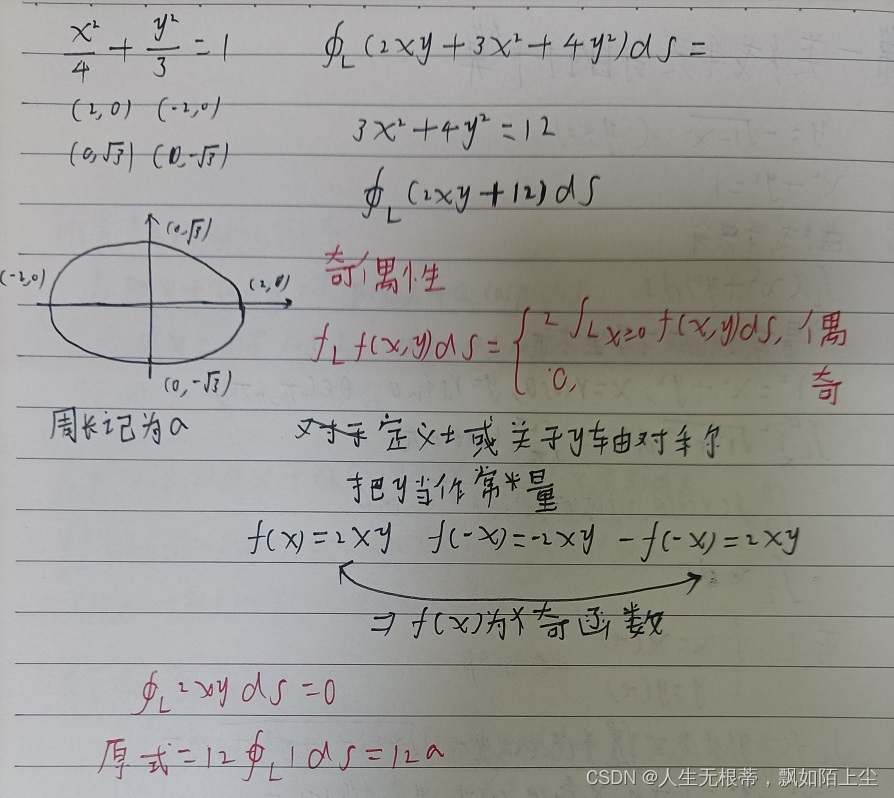 x²/4 + y²/3 = 1
∮_L (2xy + 3x² + 4y²) ds =
(2,0) (-2,0)
(0,√3) (0,-√3)
3x² + 4y² = 12
∮_L (2xy + 12) ds
(0,√3)
(-2,0)
(2,0)
(0,-√3)
周长记为a
奇偶性
∮_L f(x,y) ds = { 2∫_{L x≥0} f(x,y) ds, 偶
0, 奇
对于定义域关于y轴对称
把y当作常量
f(x) = 2xy f(-x) = -2xy -f(-x) = 2xy
⇒ f(x)为x奇函数
∮_L 2xy ds = 0
原式 = 12 ∮_L 1 ds = 12a
CSDN @人生无根蒂，飘如陌上尘